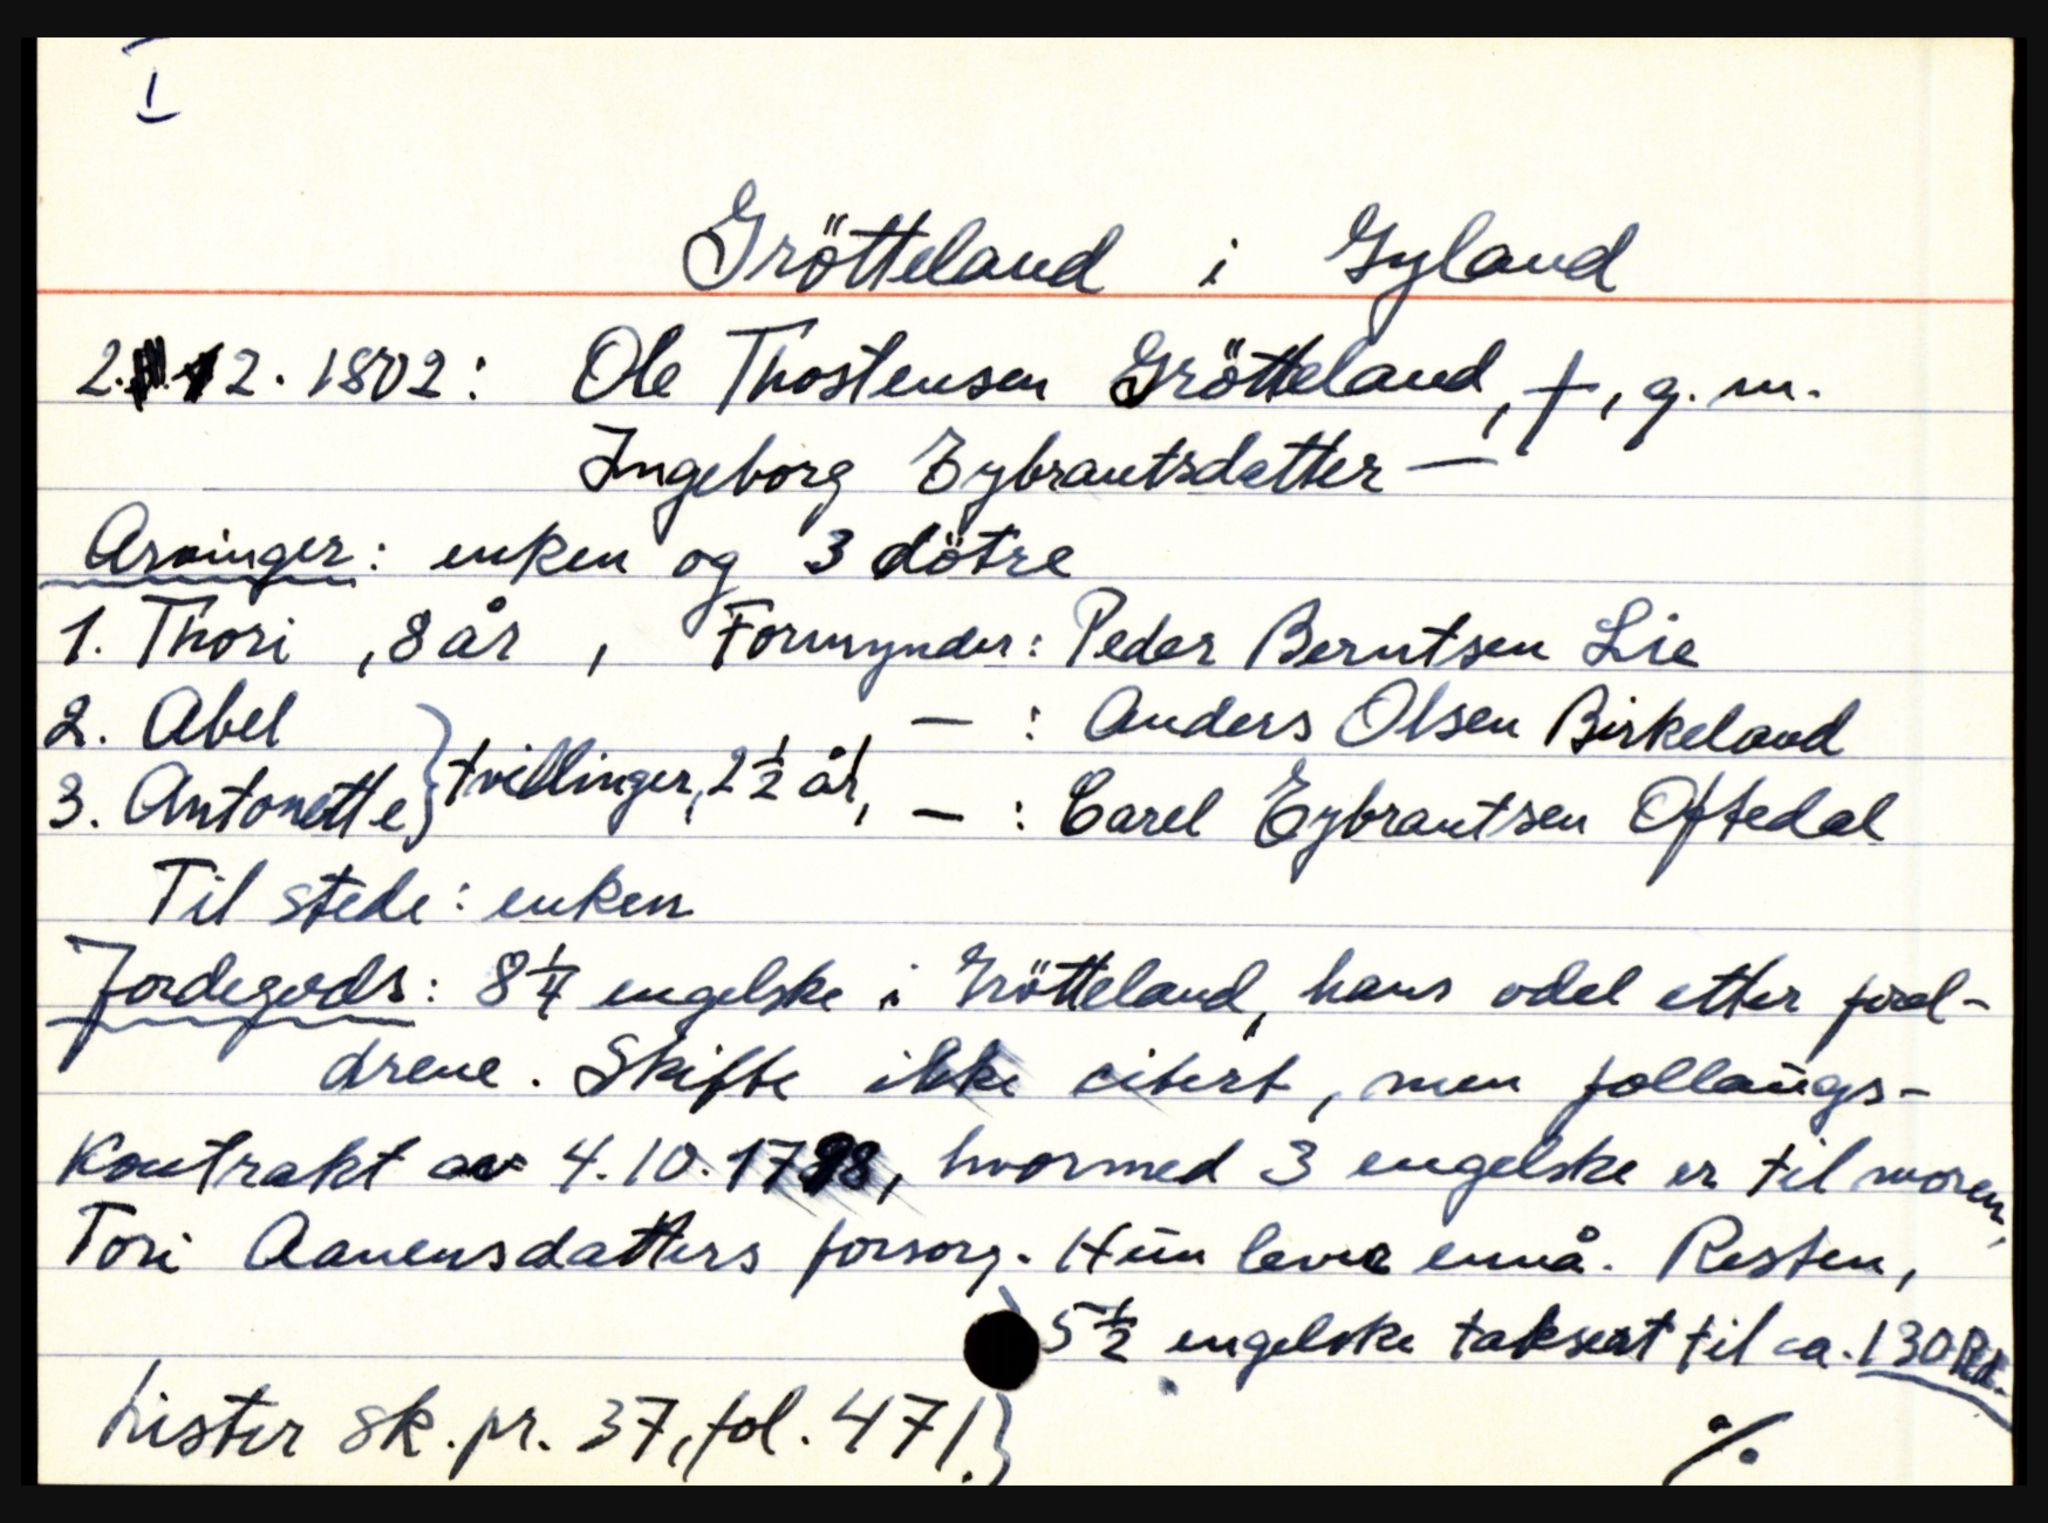 I
Grötteland i Gyland
2.12.1802: Ole Thostensen Grötteland, †, g. m.
Ingeborg Eybrantsdatter —
Arvinger: enken og 3 dötre
1. Thori, 8 år, Formynder: Peder Berntsen Lie
2. Abel — : Anders Olsen Birkeland
3. Antonette } tvillinger, 2 ½ år, — : Carel Eybrantsen Oftedal
Til stede: enken
Jordegods: 8 ¼ engelske i Grötteland, hans odel etter forel-
drene. Skifte ikke citert, men follaugs-
kontrakt av 4.10.1798, hvormed 3 engelske er til moren,
Tori Aanensdatters forsorg. Hun lever ennå. Resten,
5 ½ engelske taksert til ca. 130 Rd.
Lister sk. pr. 37, fol. 471.}
%